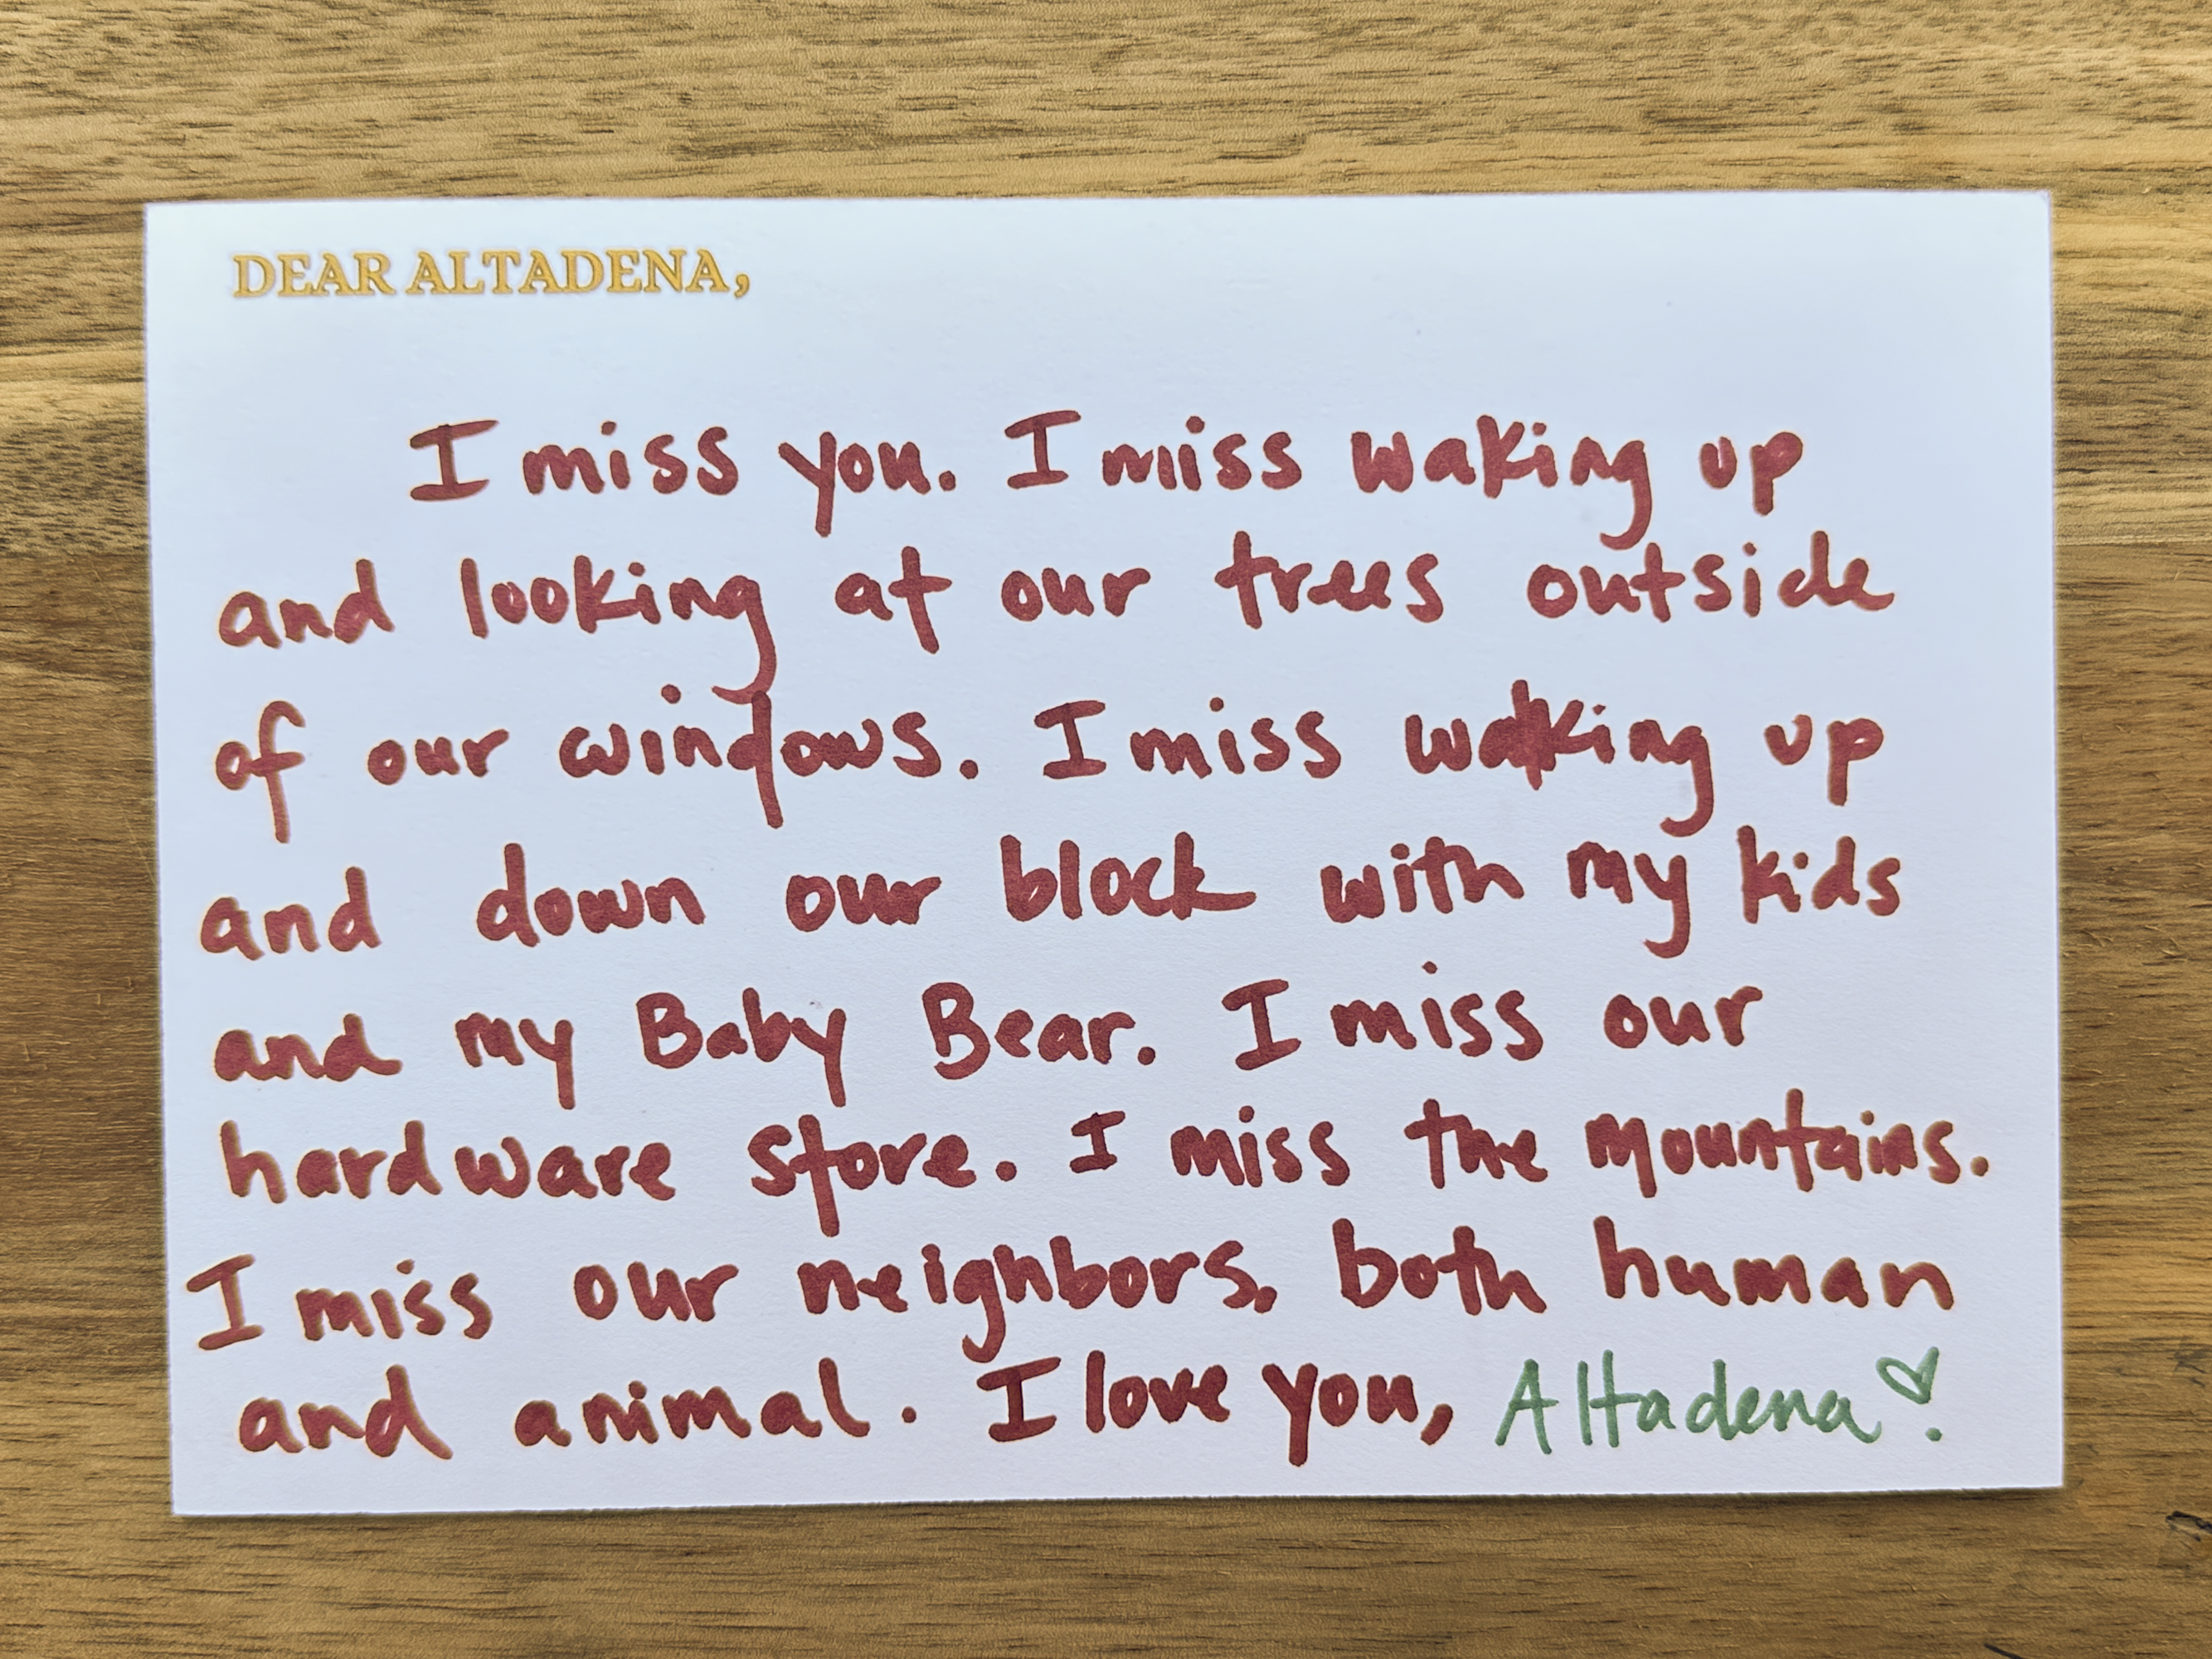 DEAR ALTADENA,
I miss you. I miss waking up
and looking at our trees outside
of our windows. I miss walking up
and down our block with my kids
and my Baby Bear. I miss our
hardware store. I miss the mountains.
I miss our neighbors, both human
and animal. I love you, Altadena♡.